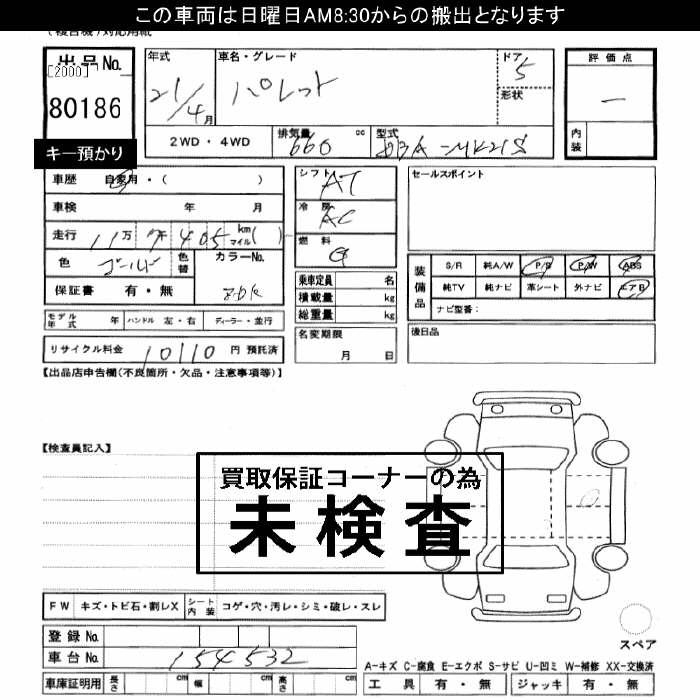 この車両は日曜日AM8:30からの搬出となります
出品No.
[2000]
80186
キー預かり
年式
21/4月
車名・グレード
パレット
ドア
5
形状
評価点
一
内装
2WD・4WD
排気量
660
cc
型式
DBA-MK21S
車歴 自家用・( )
車検 年 月
走行 11万 7千405 km マイル( )
色 ゴールド 色替 カラーNo.
保証書 有・無
モデル年式 年 ハンドル 左・右 ディーラー・並行
リサイクル料金 10110 円 預託済
シフト AT
冷房 AC
燃料 G
乗車定員 名
積載量 kg
総重量 kg
名変期限
月 日
セールスポイント
装備品
S/R 純A/W P/S P/W ABS
純TV 純ナビ 革シート 外ナビ エアB
ナビ型番:
後日品
【出品店申告欄(不良箇所・欠品・注意事項等)】
【検査員記入】
買取保証コーナーの為
未検査
FW キズ・トビ石・割レX シート内装 コゲ・穴・汚レ・シミ・破レ・スレ
登録No.
車台No. 154532
車庫証明用 長さ cm 幅 cm 高さ cm
スペア
A-キズ C-腐食 E-エクボ S-サビ U-凹ミ W-補修 XX-交換済
工具 有・無 ジャッキ 有・無